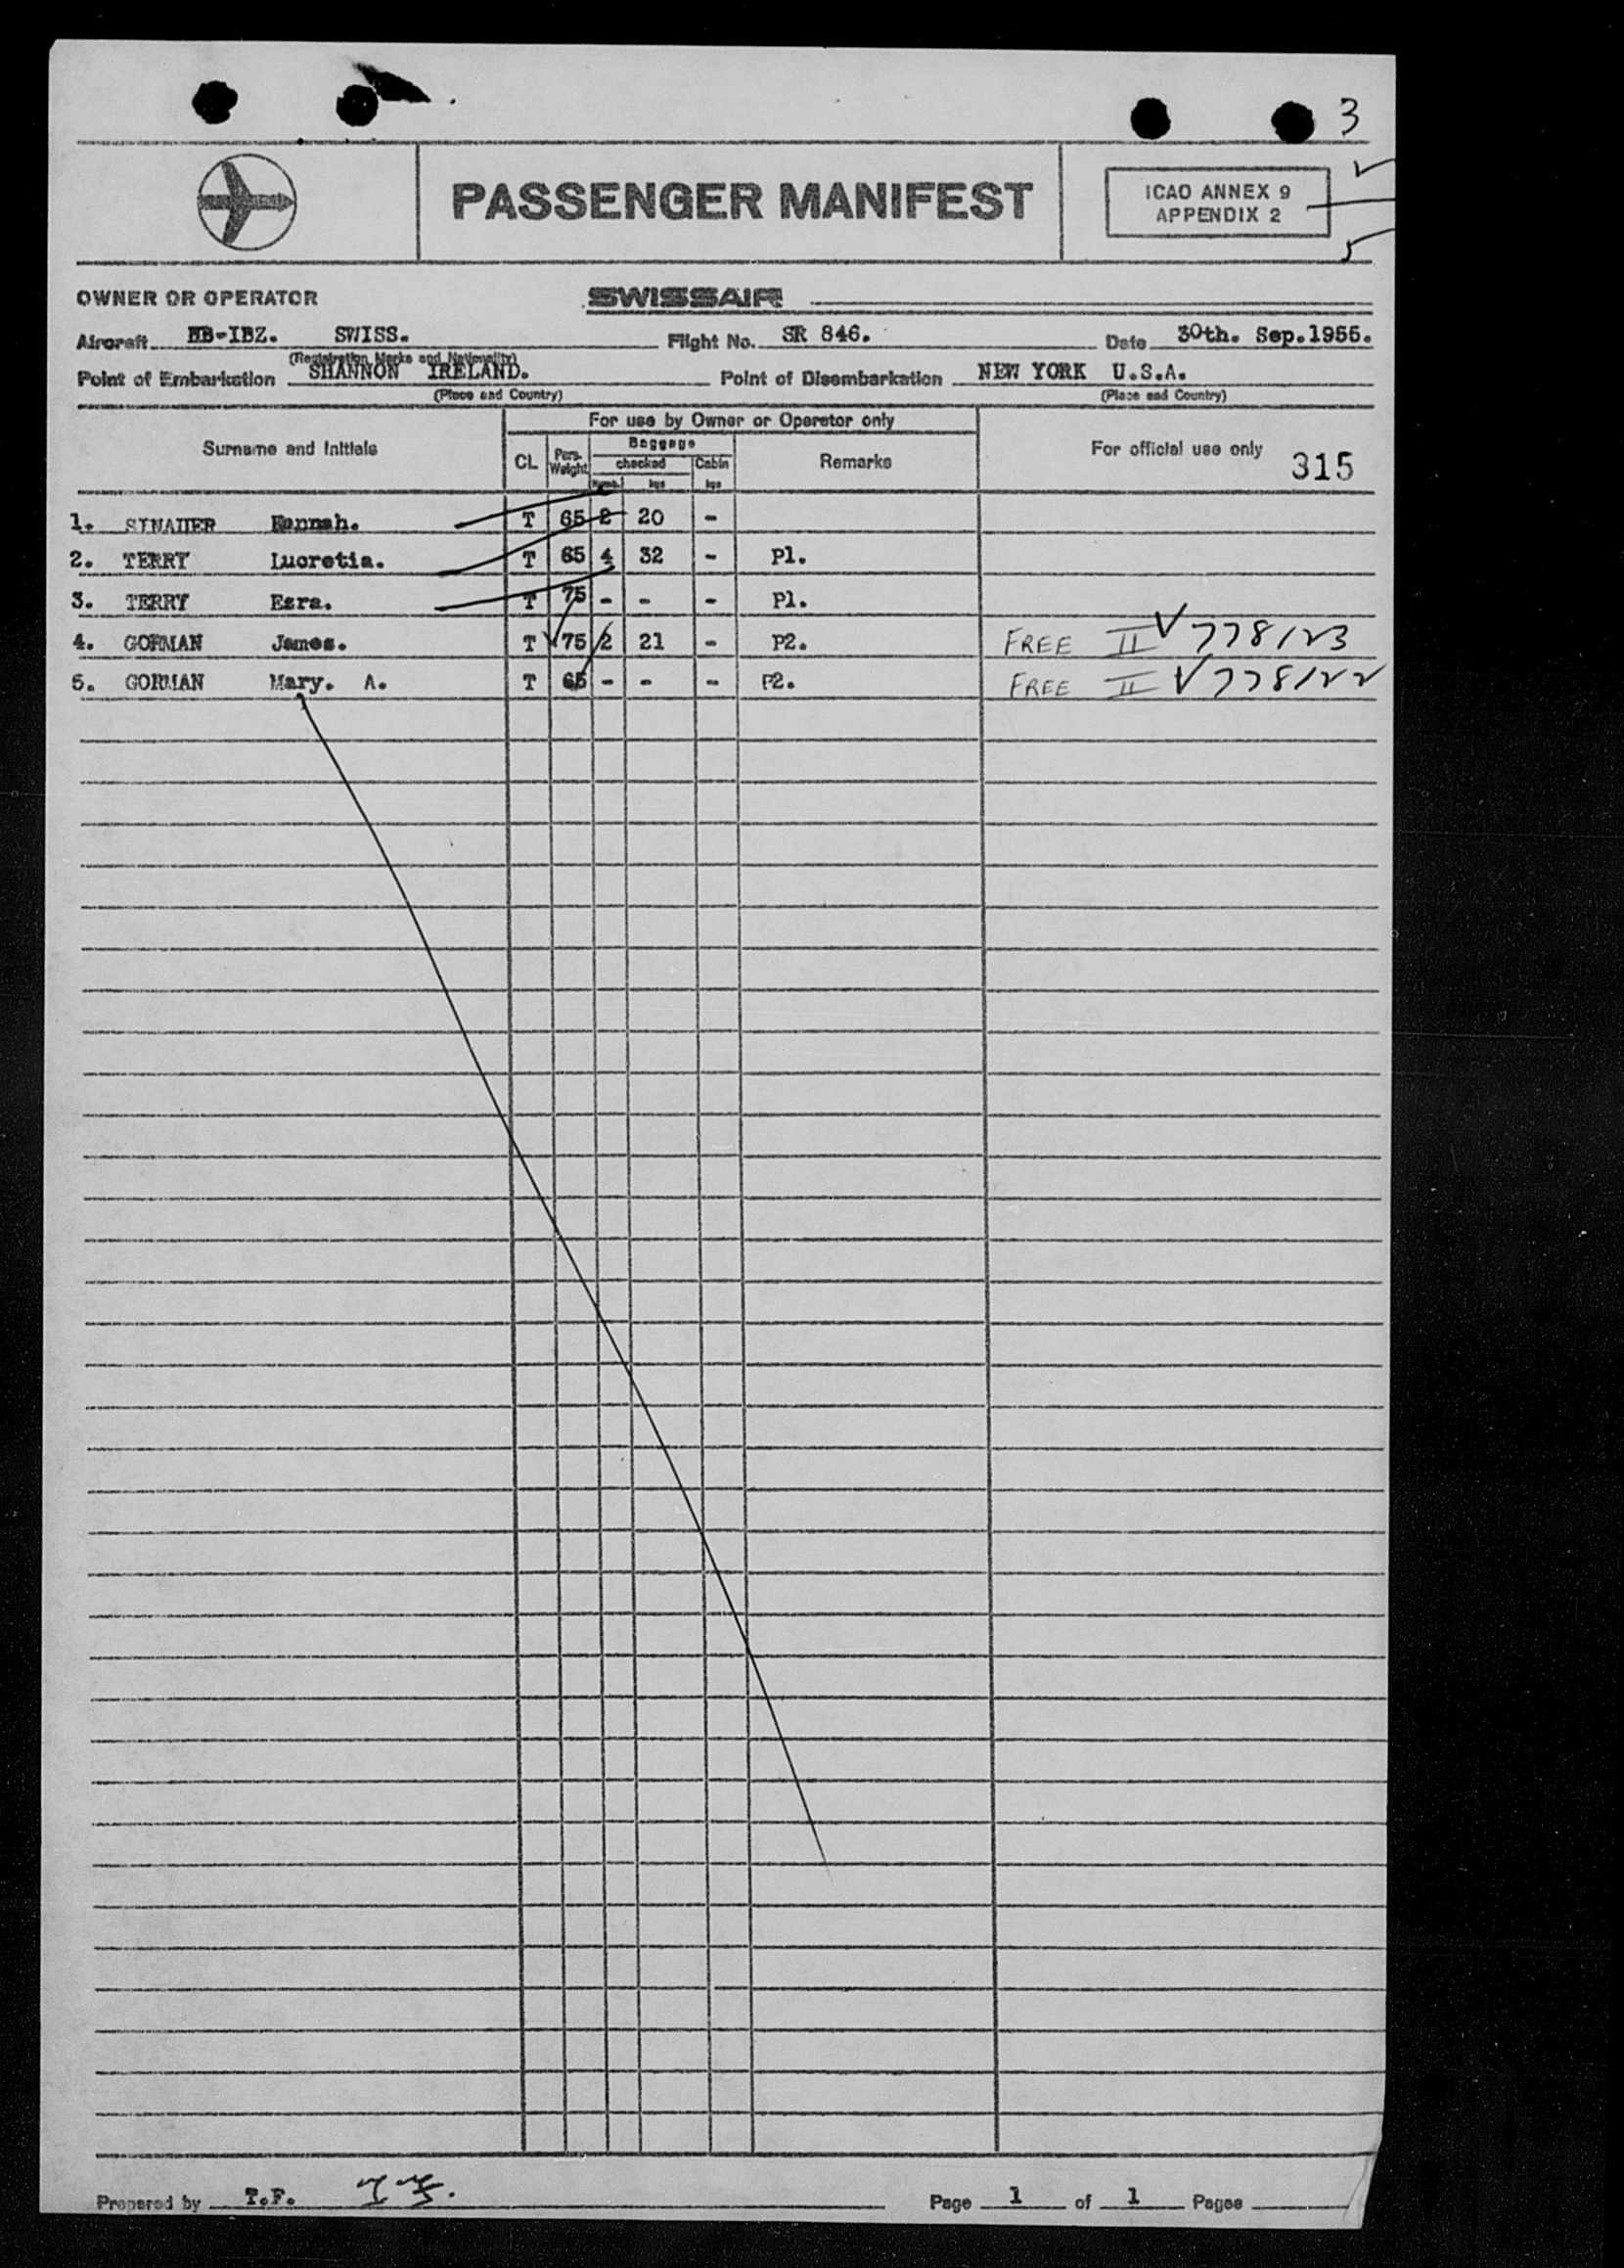 3
PASSENGER MANIFEST
ICAO ANNEX 9
APPENDIX 2
OWNER OR OPERATOR SWISSAIR
Aircraft HB-IBZ. SWISS. Flight No. SR 846. Date 30th. Sep.1955.
(Registration Marks and Nationality)
Point of Embarkation SHANNON IRELAND. Point of Disembarkation NEW YORK U.S.A.
(Place and Country) (Place and Country)
For use by Owner or Operator only
Surname and Initials CL Pers. Weight Baggage checked Numb. kgs Cabin kgs Remarks For official use only 315
1. Hannah. T 65 2 20 -
2. TERRY Lucretia. T 65 4 32 - P1.
3. TERRY Ezra. T 75 - - - P1.
4. GORMAN James. T 75 2 21 - P2. FREE II V 778123
5. GORMAN Mary. A. T 65 - - - P2. FREE II V 778122
Prepared by T.F. Page 1 of 1 Pages